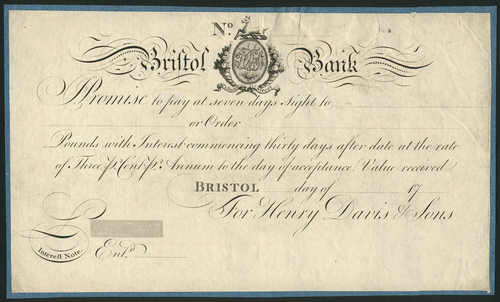 No.
Bristol Bank
I Promise to pay at seven days Sight to
or Order
Pounds with Interest commencing thirty days after date at the rate
of Three Pr. Cent Pr. Annum to the day of acceptance. Value received
BRISTOL day of 17
For Henry Davis & Sons
Interest Note.
Ent.d